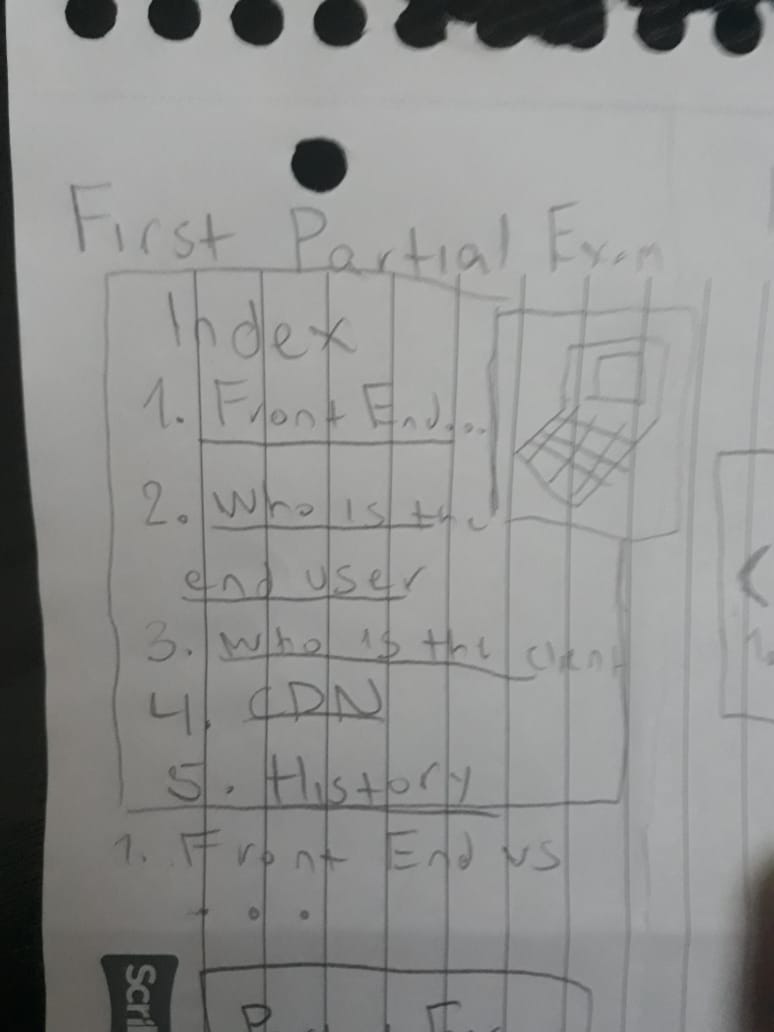 First Partial Exam
Index
1. Front End...
2. Who is the
end user
3. Who is the client
4. CDN
5. History
1. Front End vs
...
Scri